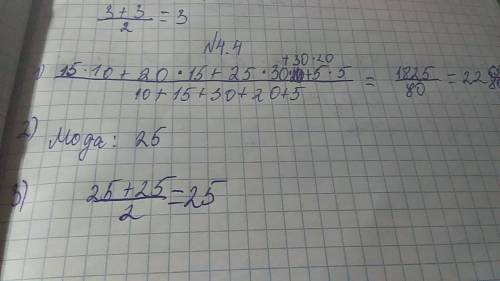 (3+3)/2 = 3
№4.4
1) (15·10 + 20·15 + 25·30 + 30·20 + 5·5)/(10+15+30+20+5) = 1825/80 = 22
2) Мода: 25
3) (25+25)/2 = 25